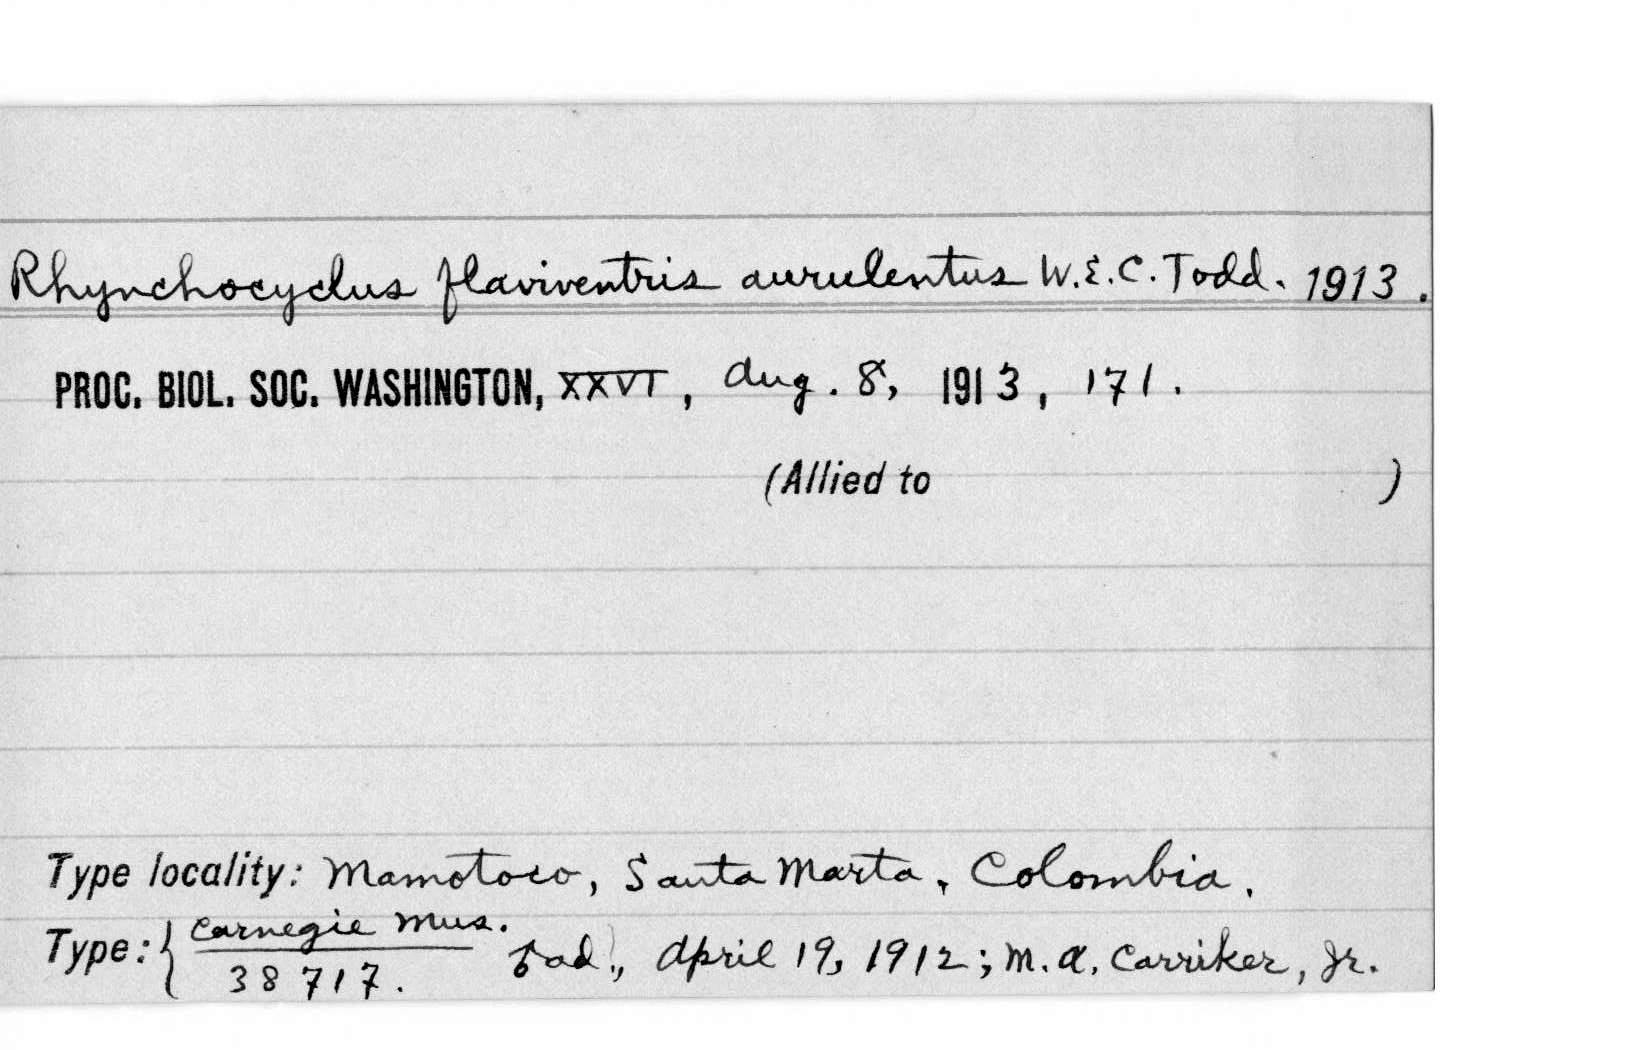 Rhynchocyclus flaviventris aurulentus W.E.C. Todd. 1913.
PROC. BIOL. SOC. WASHINGTON, XXVI, Aug. 8, 1913, 171.
(Allied to )
Type locality: Mamotoco, Santa Marta, Colombia.
Type: { Carnegie Mus.
38717. ♂ ad., April 19, 1912; M. A. Carriker, Jr.